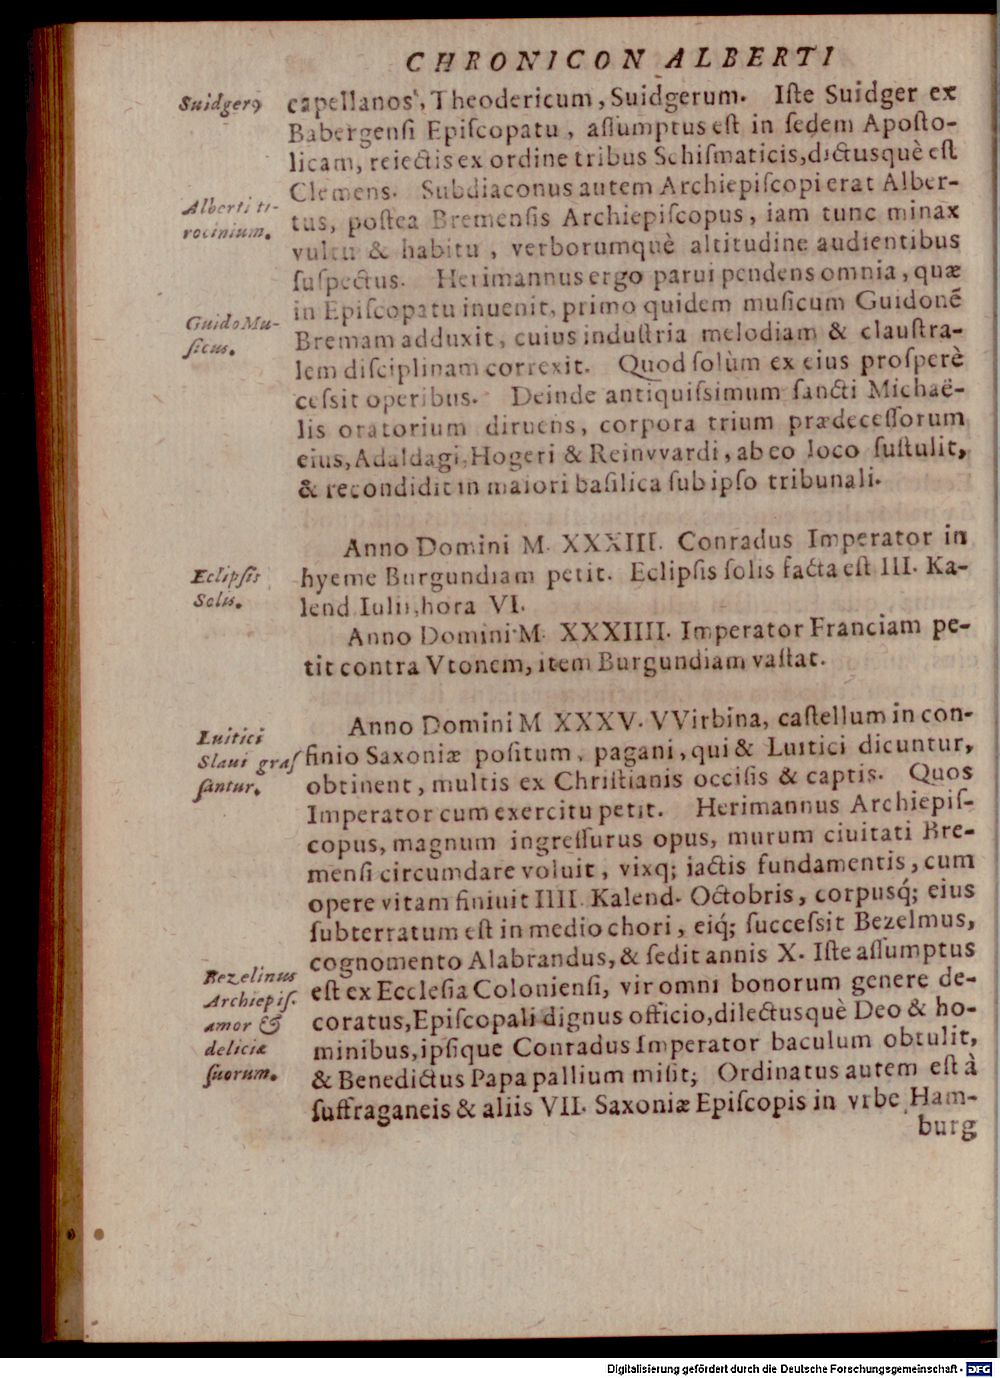 CHRONICON ALBERTI
Suidgerꝰ
capellanos, Theodericum, Suidgerum. Iſte Suidger ex
Babergenſi Epiſcopatu, aſſumptus eſt in ſedem Apoſto-
licam, reiectis ex ordine tribus Schiſmaticis, dictusquè eſt
Clemens. Subdiaconus autem Archiepiſcopi erat Alber-
Alberti ti-
rocinium.
tus, poſtea Bremenſis Archiepiſcopus, iam tunc minax
vultu & habitu, verborumquè altitudine audientibus
ſuſpectus. Herimannus ergo parui pendens omnia, quæ
in Epiſcopatu inuenit, primo quidem muſicum Guidonẽ
Guido Mu-
ſicus.
Bremam adduxit, cuius induſtria melodiam & clauſtra-
lem diſciplinam correxit. Quod ſolùm ex eius proſperè
ceſsit operibus. Deinde antiquiſsimum ſancti Michaë-
lis oratorium diruens, corpora trium prædeceſſorum
eius, Adaldagi, Hogeri & Reinvvardi, ab eo loco ſuſtulit,
& recondidit in maiori baſilica ſub ipſo tribunali.
Anno Domini M. XXXIII. Conradus Imperator in
Eclipſis
Solis.
hyeme Burgundiam petit. Eclipſis ſolis facta eſt III. Ka-
lend. Iulii, hora VI.
Anno Domini M. XXXIIII. Imperator Franciam pe-
tit contra Vtonem, item Burgundiam vaſtat.
Anno Domini M XXXV. VVirbina, caſtellum in con-
Luitici
Slaui graſ
ſantur.
finio Saxoniæ poſitum, pagani, qui & Luitici dicuntur,
obtinent, multis ex Chriſtianis occiſis & captis. Quos
Imperator cum exercitu petit. Herimannus Archiepiſ-
copus, magnum ingreſſurus opus, murum ciuitati Bre-
menſi circumdare voluit, vixq; iactis fundamentis, cum
opere vitam finiuit IIII. Kalend. Octobris, corpusq́; eius
ſubterratum eſt in medio chori, eiq́; ſucceſsit Bezelmus,
cognomento Alabrandus, & ſedit annis X. Iſte aſſumptus
Bezelinus
Archiepiſ.
amor &
deliciæ
ſuorum.
eſt ex Eccleſia Colonienſi, vir omni bonorum genere de-
coratus, Epiſcopali dignus officio, dilectusquè Deo & ho-
minibus, ipſique Conradus Imperator baculum obtulit,
& Benedictus Papa pallium miſit; Ordinatus autem eſt à
ſuffraganeis & aliis VII. Saxoniæ Epiſcopis in vrbe Ham-
burg
Digitalisierung gefördert durch die Deutsche Forschungsgemeinschaft - DFG